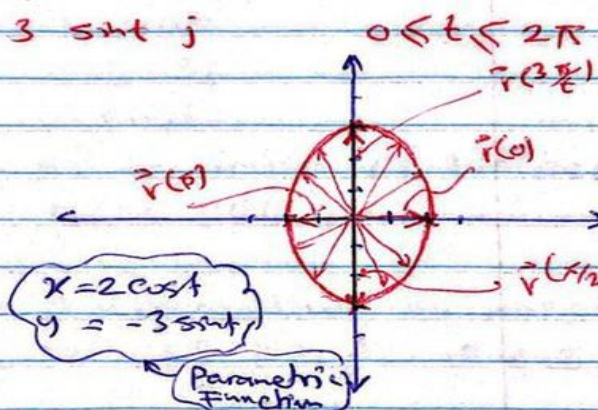 3 sint j 0 ≤ t ≤ 2π
r⃗(3π/t)
r⃗(0)
r⃗(π)
r⃗(π/2
x = 2 cost
y = -3 sint
Parametric
Function